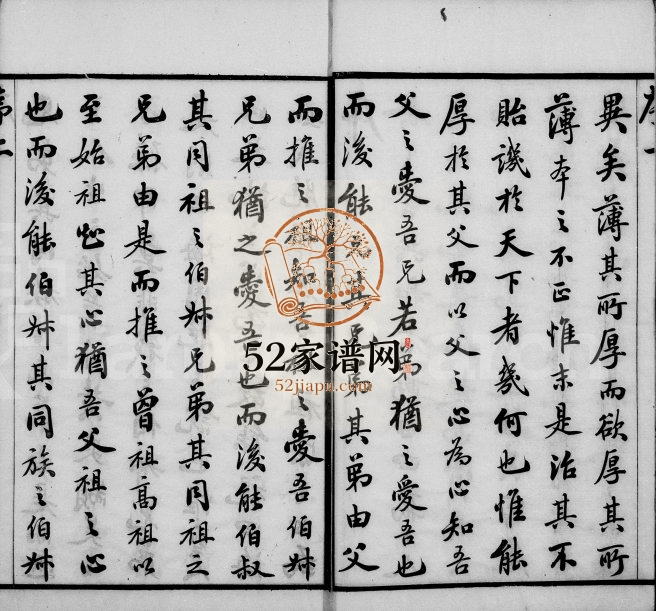 序一
異矣薄其所厚而欲厚其所
薄本之不正惟末是治其不
貽譏於天下者幾何也惟能
厚於其父而以父之心為心知吾
父之愛吾兄若弟猶之愛吾也
而後能兄其兄弟其弟由父
而推之祖知吾祖之愛吾伯叔
兄弟猶之愛吾也而後能伯叔
其同祖之伯叔兄弟其同祖之
兄弟由是而推之曾祖高祖以
至始祖其心猶吾父祖之心
也而後能伯叔其同族之伯叔
序二
52家谱网
52jiapu.com